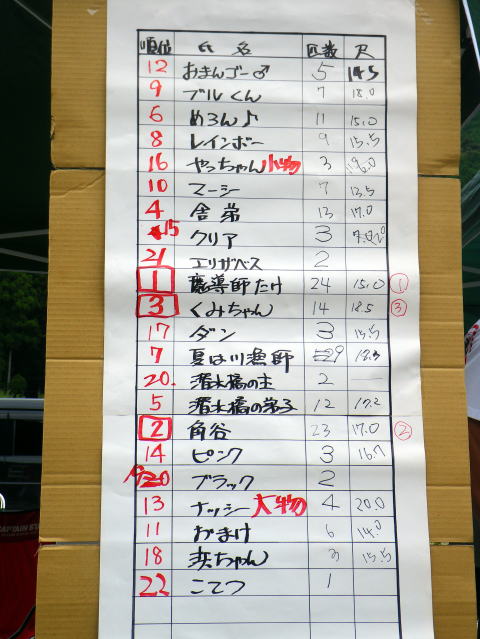 順位 氏名 匹数 尺
12 おまんゴー♂ 5 14.5
9 ブルくん 7 18.0
6 めろん♪ 11 15.0
8 レインボー 9 15.5
16 やっちゃん 小物 3
10 マーシー 7 13.5
4 舎弟 13 17.0
15 クリア 3
21 エリザベス 2
1 魔導師たけ 24 15.0 ①
3 くみちゃん 14 18.5 ③
17 ダン 3 15.5
7 夏は川漁師 9 18.5
20. 潜水橋の主 2 —
5 潜水橋の弟子 12 17.2
2 角谷 23 17.0 ②
14 ピンク 3 16.7
20 ブラック 2
13 ナッシー 大物 4 20.0
11 おまけ 6 14.0
18 ちゃん 3 15.5
22 こてつ 1